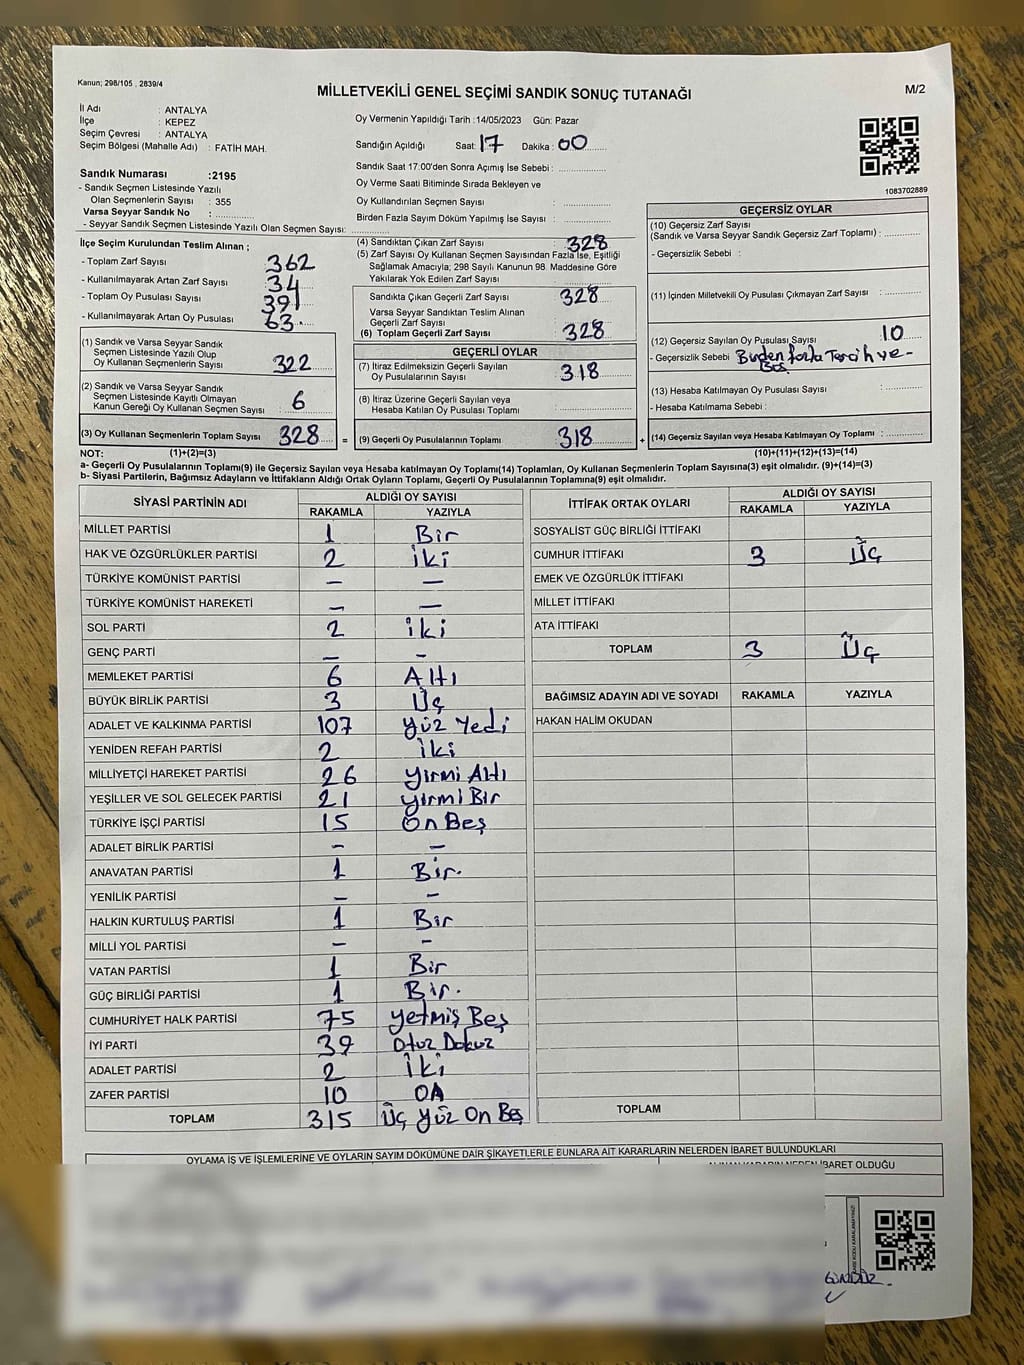 Kanun; 298/105 , 2839/4
MİLLETVEKİLİ GENEL SEÇİMİ SANDIK SONUÇ TUTANAĞI
M/2
İl Adı : ANTALYA
İlçe : KEPEZ
Seçim Çevresi : ANTALYA
Seçim Bölgesi (Mahalle Adı) : FATİH MAH.
Oy Vermenin Yapıldığı Tarih :14/05/2023 Gün: Pazar
Sandığın Açıldığı Saat: 17 Dakika : 00
Sandık Saat 17:00'den Sonra Açımış İse Sebebi :
Oy Verme Saati Bitiminde Sırada Bekleyen ve
Oy Kullandırılan Seçmen Sayısı :
Birden Fazla Sayım Döküm Yapılmış İse Sayısı :
1083702889
Sandık Numarası :2195
- Sandık Seçmen Listesinde Yazılı
Olan Seçmenlerin Sayısı : 355
Varsa Seyyar Sandık No :
- Seyyar Sandık Seçmen Listesinde Yazılı Olan Seçmen Sayısı:
İlçe Seçim Kurulundan Teslim Alınan ;
- Toplam Zarf Sayısı : 362
- Kullanılmayarak Artan Zarf Sayısı : 34
- Toplam Oy Pusulası Sayısı : 391
- Kullanılmayarak Artan Oy Pusulası : 63
(1) Sandık ve Varsa Seyyar Sandık
Seçmen Listesinde Yazılı Olup
Oy Kullanan Seçmenlerin Sayısı : 322
(2) Sandık ve Varsa Seyyar Sandık
Seçmen Listesinde Kayıtlı Olmayan
Kanun Gereği Oy Kullanan Seçmen Sayısı : 6
(3) Oy Kullanan Seçmenlerin Toplam Sayısı : 328 =
(4) Sandıktan Çıkan Zarf Sayısı : 328
(5) Zarf Sayısı Oy Kullanan Seçmen Sayısından Fazla İse, Eşitliği
Sağlamak Amacıyla; 298 Sayılı Kanunun 98. Maddesine Göre
Yakılarak Yok Edilen Zarf Sayısı :
Sandıkta Çıkan Geçerli Zarf Sayısı : 328
Varsa Seyyar Sandıktan Teslim Alınan
Geçerli Zarf Sayısı :
(6) Toplam Geçerli Zarf Sayısı : 328
GEÇERLİ OYLAR
(7) İtiraz Edilmeksizin Geçerli Sayılan
Oy Pusulalarının Sayısı : 318
(8) İtiraz Üzerine Geçerli Sayılan veya
Hesaba Katılan Oy Pusulası Toplamı :
(9) Geçerli Oy Pusulalarının Toplamı : 318 +
GEÇERSİZ OYLAR
(10) Geçersiz Zarf Sayısı
(Sandık ve Varsa Seyyar Sandık Geçersiz Zarf Toplamı) :
- Geçersizlik Sebebi :
(11) İçinden Milletvekili Oy Pusulası Çıkmayan Zarf Sayısı :
(12) Geçersiz Sayılan Oy Pusulası Sayısı : 10
- Geçersizlik Sebebi : Birden fazla Tercih ve-
Boş
(13) Hesaba Katılmayan Oy Pusulası Sayısı :
- Hesaba Katılmama Sebebi :
(14) Geçersiz Sayılan veya Hesaba Katılmayan Oy Toplamı :
NOT: (1)+(2)=(3) (10)+(11)+(12)+(13)=(14)
a- Geçerli Oy Pusulalarının Toplamı(9) ile Geçersiz Sayılan veya Hesaba katılmayan Oy Toplamı(14) Toplamları, Oy Kullanan Seçmenlerin Toplam Sayısına(3) eşit olmalıdır. (9)+(14)=(3)
b- Siyasi Partilerin, Bağımsız Adayların ve İttifakların Aldığı Ortak Oyların Toplamı, Geçerli Oy Pusulalarının Toplamına(9) eşit olmalıdır.
SİYASİ PARTİNİN ADI ALDIĞI OY SAYISI
RAKAMLA YAZIYLA
MİLLET PARTİSİ 1 Bir
HAK VE ÖZGÜRLÜKLER PARTİSİ 2 iki
TÜRKİYE KOMÜNİST PARTİSİ – –
TÜRKİYE KOMÜNİST HAREKETİ – –
SOL PARTİ 2 iki
GENÇ PARTİ – –
MEMLEKET PARTİSİ 6 Altı
BÜYÜK BİRLİK PARTİSİ 3 Üç
ADALET VE KALKINMA PARTİSİ 107 Yüz Yedi
YENİDEN REFAH PARTİSİ 2 İki
MİLLİYETÇİ HAREKET PARTİSİ 26 Yirmi Altı
YEŞİLLER VE SOL GELECEK PARTİSİ 21 Yirmi Bir
TÜRKİYE İŞÇİ PARTİSİ 15 On Beş
ADALET BİRLİK PARTİSİ – –
ANAVATAN PARTİSİ 1 Bir.
YENİLİK PARTİSİ – –
HALKIN KURTULUŞ PARTİSİ 1 Bir
MİLLİ YOL PARTİSİ – –
VATAN PARTİSİ 1 Bir
GÜÇ BİRLİĞİ PARTİSİ 1 Bir.
CUMHURİYET HALK PARTİSİ 75 Yetmiş Beş
İYİ PARTİ 39 Otuz Dokuz
ADALET PARTİSİ 2 İki
ZAFER PARTİSİ 10 On
TOPLAM 315 Üç Yüz On Beş
İTTİFAK ORTAK OYLARI ALDIĞI OY SAYISI
RAKAMLA YAZIYLA
SOSYALİST GÜÇ BİRLİĞİ İTTİFAKI
CUMHUR İTTİFAKI 3 Üç
EMEK VE ÖZGÜRLÜK İTTİFAKI
MİLLET İTTİFAKI
ATA İTTİFAKI
TOPLAM 3 Üç
BAĞIMSIZ ADAYIN ADI VE SOYADI RAKAMLA YAZIYLA
HAKAN HALİM OKUDAN
TOPLAM
OYLAMA İŞ VE İŞLEMLERİNE VE OYLARIN SAYIM DÖKÜMÜNE DAİR ŞİKAYETLERLE BUNLARA AİT KARARLARIN NELERDEN İBARET BULUNDUKLARI
ALINAN KARARIN NEDEN İBARET OLDUĞU
GÜNDÜZ